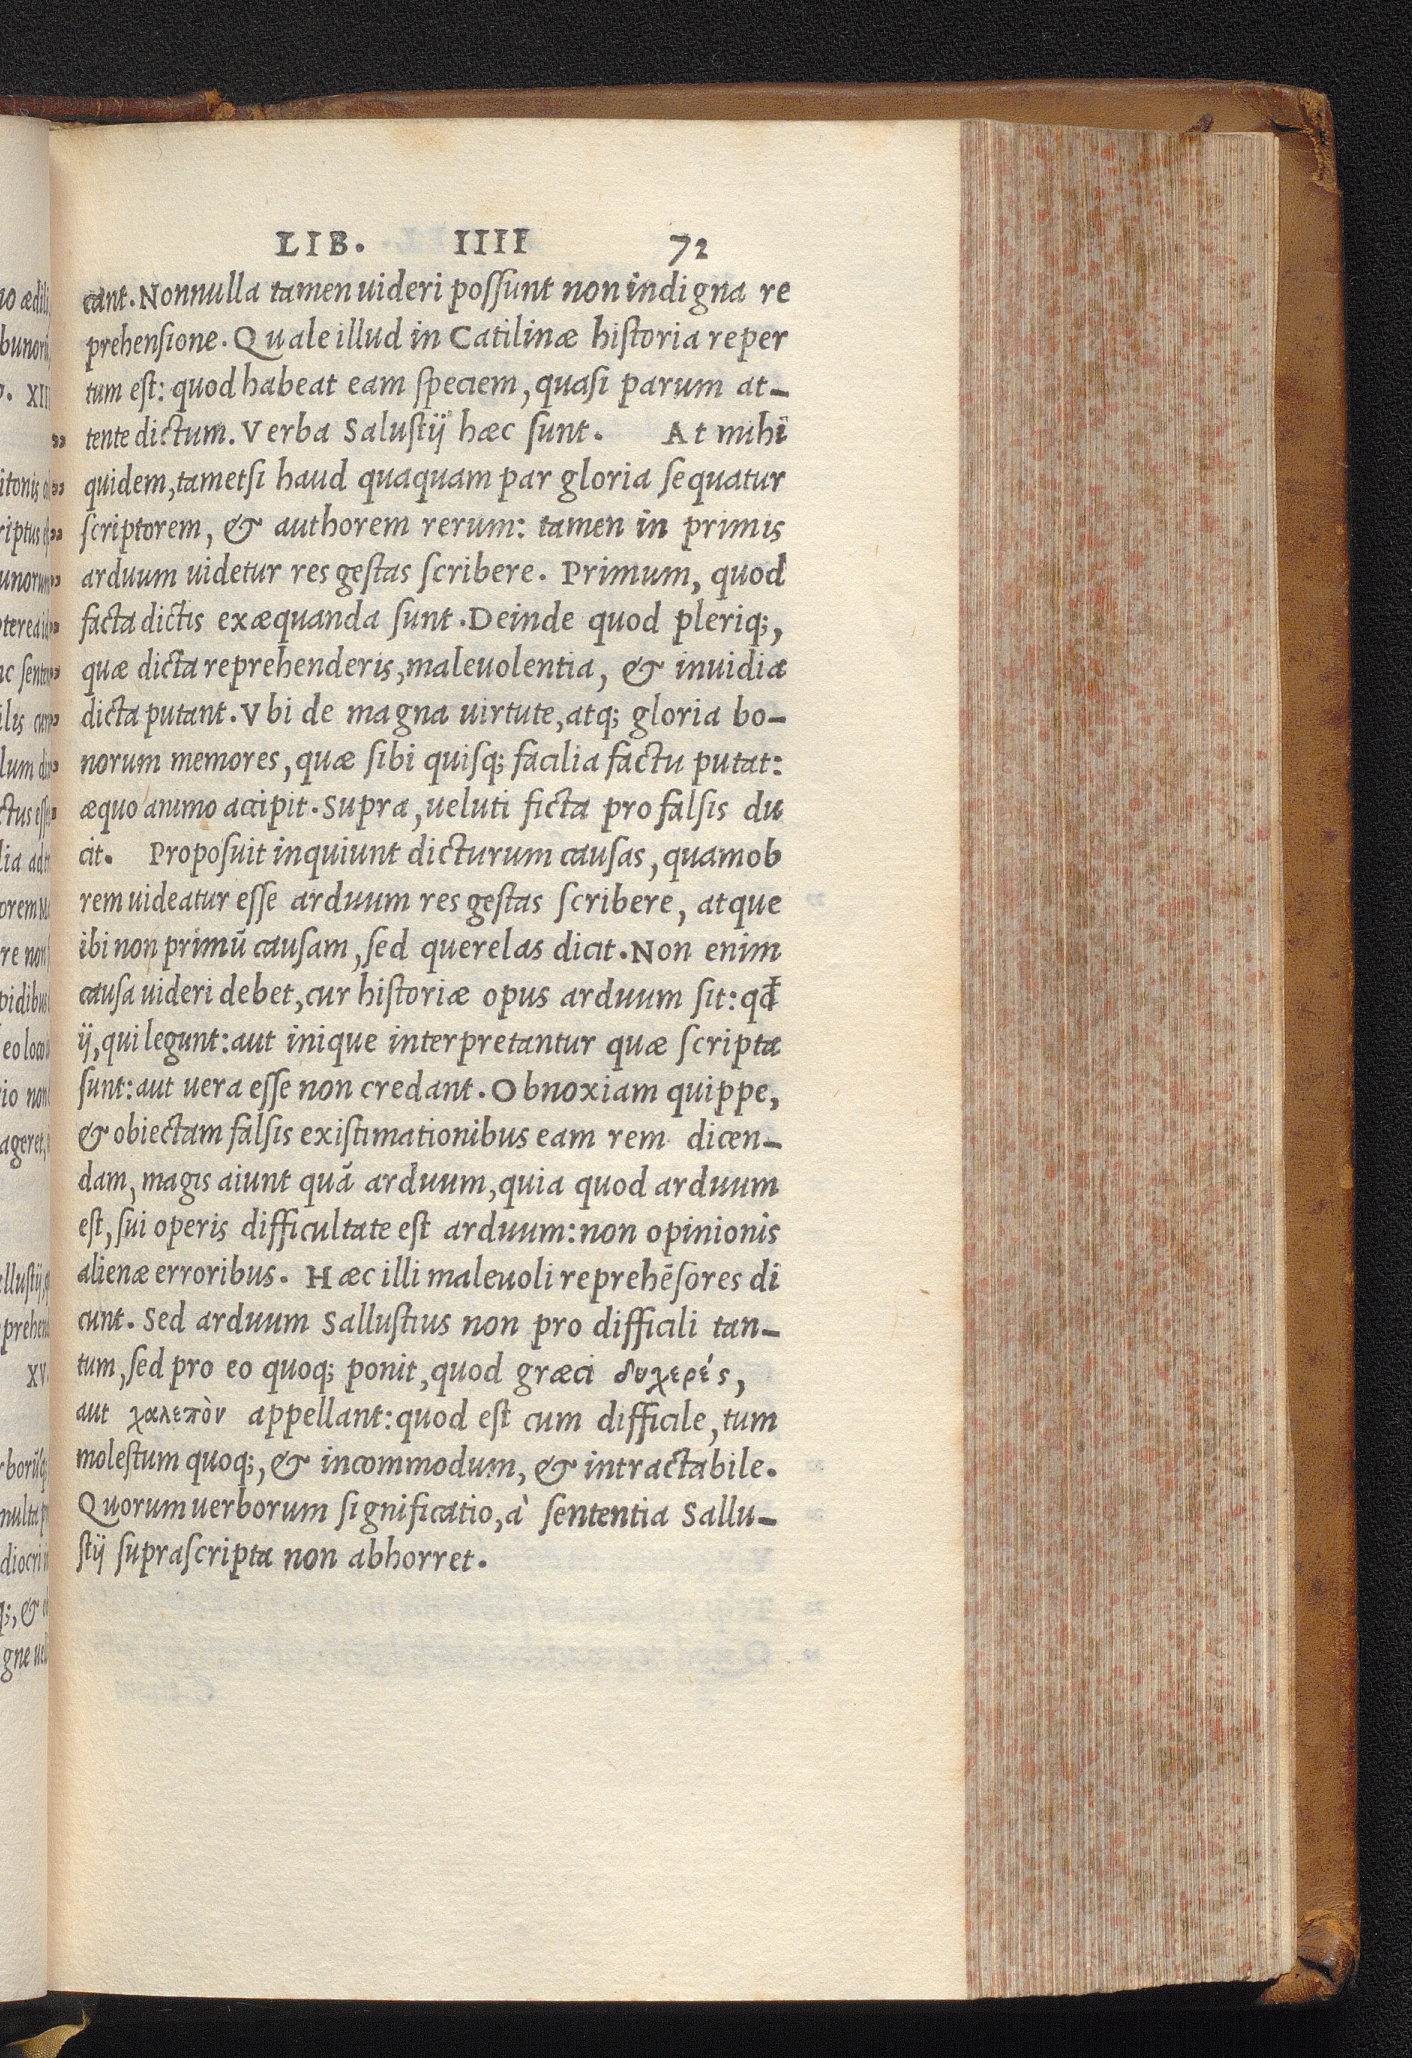 LIB. IIII 72
cant. Nonnulla tamen uideri possunt non indigna re
prehensione. Quale illud in Catilinæ historia reper
tum est: quod habeat eam speciem, quasi parum at-
tente dictum. Verba Salustij hæc sunt. At mihi
quidem, tametsi haud quaquam par gloria sequatur
scriptorem, & authorem rerum: tamen in primis
arduum uidetur res gestas scribere. Primum, quod
facta dictis exæquanda sunt. Deinde quod pleriq;,
quæ dicta reprehenderis, maleuolentia, & inuidia
dicta putant. Vbi de magna uirtute, atq; gloria bo-
norum memores, quæ sibi quisq; facilia factu putat:
æquo animo accipit. Supra, ueluti ficta pro falsis du
cit. Proposuit inquiunt dicturum causas, quamob
rem uideatur esse arduum res gestas scribere, atque
ibi non primū causam, sed querelas dicit. Non enim
causa uideri debet, cur historiæ opus arduum sit: qđ
ij, qui legunt: aut inique interpretantur quæ scripta
sunt: aut uera esse non credant. Obnoxiam quippe,
& obiectam falsis existimationibus eam rem dicen-
dam, magis aiunt quā arduum, quia quod arduum
est, sui operis difficultate est arduum: non opinionis
alienæ erroribus. Hæc illi maleuoli reprehēsores di
cunt. Sed arduum Sallustius non pro difficili tan-
tum, sed pro eo quoq; ponit, quod græci δυχερές,
aut χαλεπὸν appellant: quod est cum difficile, tum
molestum quoq;, & incommodum, & intractabile.
Quorum uerborum significatio, à sententia Sallu-
stij suprascripta non abhorret.